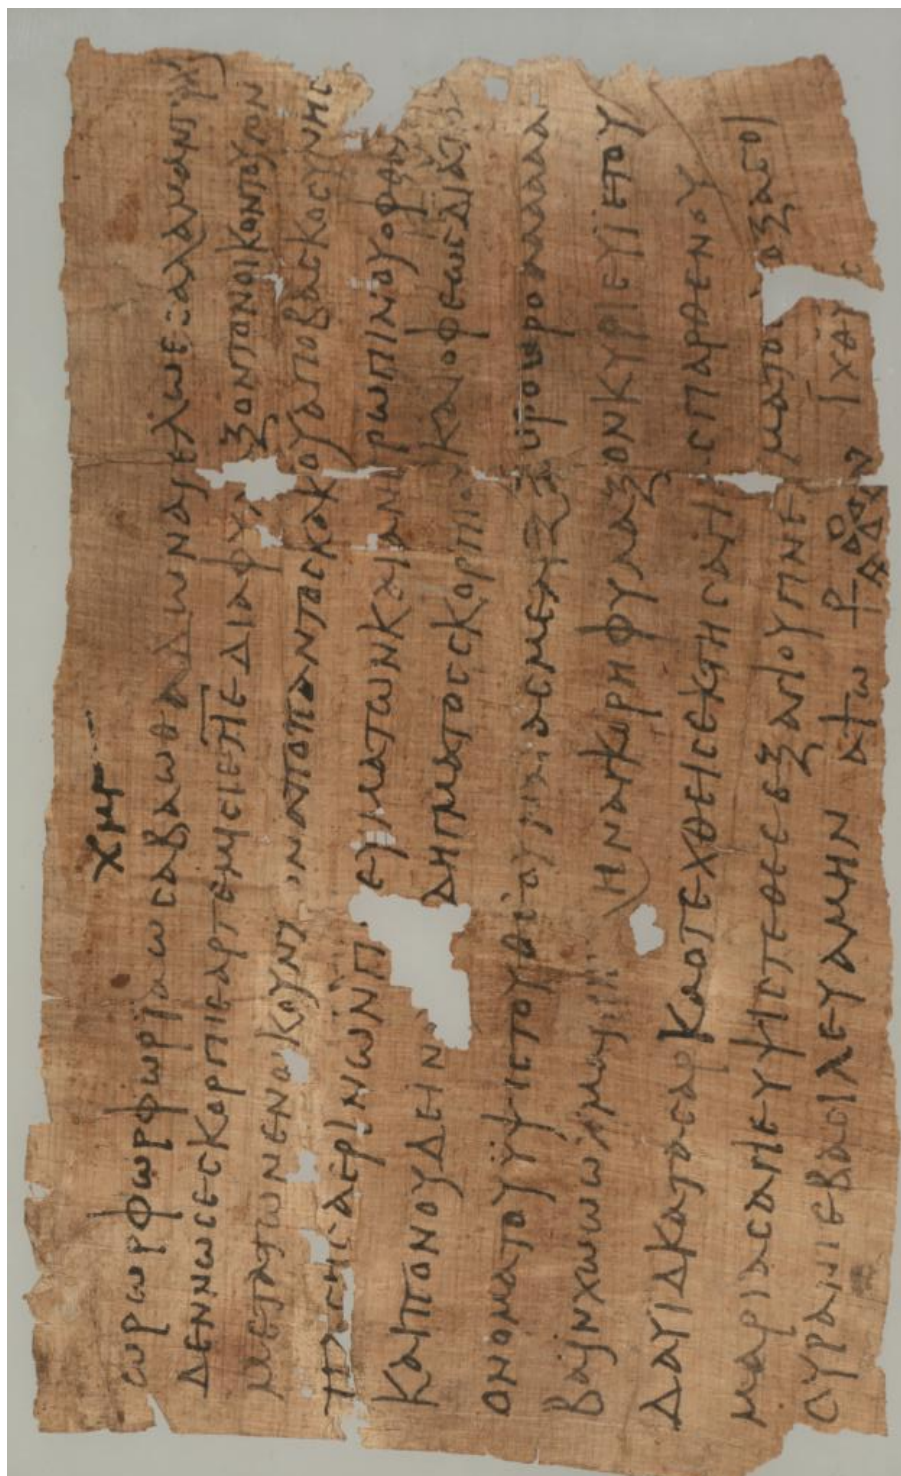 χμγ
ωρωρφωρφωρϊαωσαβαωθαδωναιελωεσαλαμανταρχι
δεννωσεσκορπιεαρτεμισιετιεδιαφυλαξοντονοικοντουτον
μετατωνενοικουντωναποπαντοςκακουαποβασκοσυνης
πασηςαερινωνπνευματωνκαιανθρωπινουοφθαλ
καιπονουδεινου δηγματοςσκορπιουκαιοφεωςδιατο
ονοματουϋψιστουθεουναιαεμελιξζουρουρουραααααα
βαινχωωωχ ληναγκορηφυλαξονκυριευιετου
δαυιδκατασαρκαοτεχθειςεκτηςαγιαςπαρθενου
μαριαςαγιευψιστεθεεεξαγιουπνευματοςδοξασοι
ουρανιεβασιλευαμην α†ω ⳨ ιχθυς